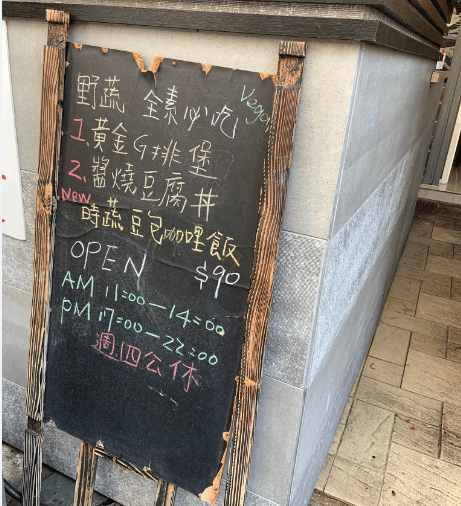 野蔬 全素必吃 Vegan
1.黃金G排堡
2.醬燒豆腐丼
New 時蔬豆包咖哩飯
OPEN $90
AM 11:00-14:00
PM 17:00-22:00
週四公休